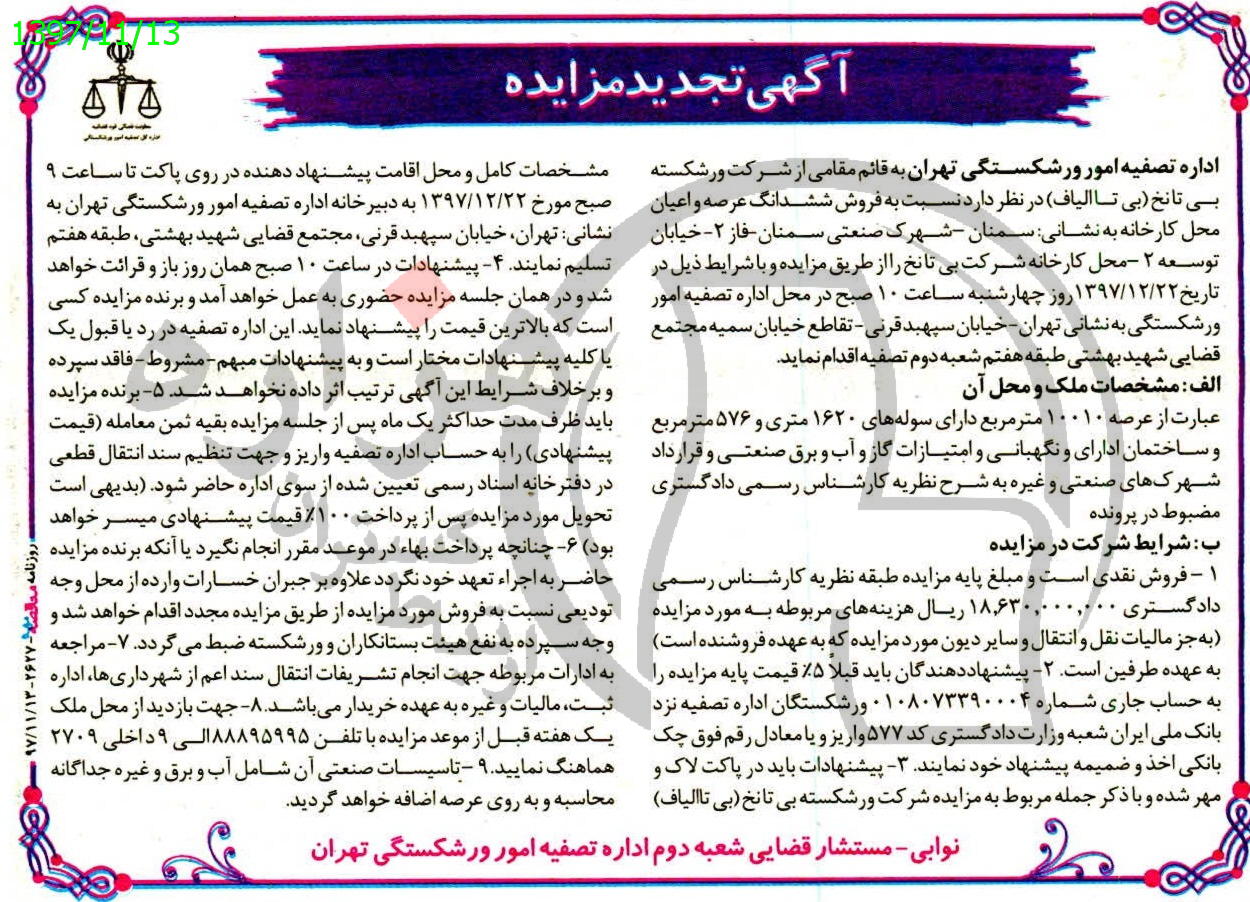 1397/11/13
آگهی تجدید مزایده
معاونت قضائی قوه قضائیه
اداره کل تصفیه امور ورشکستگی
اداره تصفیه امور ورشکستگی تهران به قائم مقامی از شرکت ورشکسته
بی تانخ (بی تاالیاف) در نظر دارد نسبت به فروش ششدانگ عرصه و اعیان
محل کارخانه به نشانی: سمنان – شهرک صنعتی سمنان-فاز ۲- خیابان
توسعه ۲ – محل کارخانه شرکت بی تانخ را از طریق مزایده و با شرایط ذیل در
تاریخ ۱۳۹۷/۱۲/۲۲ روز چهارشنبه ساعت ۱۰ صبح در محل اداره تصفیه امور
ورشکستگی به نشانی تهران-خیابان سپهبد قرنی- تقاطع خیابان سمیه مجتمع
قضایی شهید بهشتی طبقه هفتم شعبه دوم تصفیه اقدام نماید.
الف: مشخصات ملک و محل آن
عبارت از عرصه ۱۰۰۱۰ مترمربع دارای سوله‌های ۱۶۲۰ متری و ۵۷۶ مترمربع
و ساختمان ادارای و نگهبانی و امتیازات گاز و آب و برق صنعتی و قرارداد
شهرک‌های صنعتی و غیره به شرح نظریه کارشناس رسمی دادگستری
مضبوط در پرونده
ب: شرایط شرکت در مزایده
۱ – فروش نقدی است و مبلغ پایه مزایده طبقه نظریه کارشناس رسمی
دادگستری ۱۸,۶۳۰,۰۰۰,۰۰۰ ریال هزینه‌های مربوطه به مورد مزایده
(به جز مالیات نقل و انتقال و سایر دیون مورد مزایده که به عهده فروشنده است)
به عهده طرفین است. ۲- پیشنهاددهندگان باید قبلاً ۵٪ قیمت پایه مزایده را
به حساب جاری شماره ۰۱۰۸۰۷۳۳۹۰۰۰۴ ورشکستگان اداره تصفیه نزد
بانک ملی ایران شعبه وزارت دادگستری کد ۵۷۷ واریز و یا معادل رقم فوق چک
بانکی اخذ و ضمیمه پیشنهاد خود نمایند. ۳- پیشنهادات باید در پاکت لاک و
مهر شده و با ذکر جمله مربوط به مزایده شرکت ورشکسته بی تانخ (بی تاالیاف)
مشخصات کامل و محل اقامت پیشنهاد دهنده در روی پاکت تا ساعت ۹
صبح مورخ ۱۳۹۷/۱۲/۲۲ به دبیرخانه اداره تصفیه امور ورشکستگی تهران به
نشانی: تهران، خیابان سپهبد قرنی، مجتمع قضایی شهید بهشتی، طبقه هفتم
تسلیم نمایند. ۴- پیشنهادات در ساعت ۱۰ صبح همان روز باز و قرائت خواهد
شد و در همان جلسه مزایده حضوری به عمل خواهد آمد و برنده مزایده کسی
است که بالاترین قیمت را پیشنهاد نماید. این اداره تصفیه در رد یا قبول یک
یا کلیه پیشنهادات مختار است و به پیشنهادات مبهم-مشروط-فاقد سپرده
و برخلاف شرایط این آگهی ترتیب اثر داده نخواهد شد. ۵- برنده مزایده
باید ظرف مدت حداکثر یک ماه پس از جلسه مزایده بقیه ثمن معامله (قیمت
پیشنهادی) را به حساب اداره تصفیه واریز و جهت تنظیم سند انتقال قطعی
در دفترخانه اسناد رسمی تعیین شده از سوی اداره حاضر شود. (بدیهی است
تحویل مورد مزایده پس از پرداخت ۱۰۰٪ قیمت پیشنهادی میسر خواهد
بود) ۶- چنانچه پرداخت بهاء در موعد مقرر انجام نگیرد یا آنکه برنده مزایده
حاضر به اجراء تعهد خود نگردد علاوه بر جبران خسارات وارده از محل وجه
تودیعی نسبت به فروش مورد مزایده از طریق مزایده مجدد اقدام خواهد شد و
وجه سپرده به نفع هیئت بستانکاران و ورشکسته ضبط می گردد. ۷- مراجعه
به ادارات مربوطه جهت انجام تشریفات انتقال سند اعم از شهرداری‌ها، اداره
ثبت، مالیات و غیره به عهده خریدار می‌باشد. ۸- جهت بازدید از محل ملک
یک هفته قبل از موعد مزایده با تلفن ۸۸۸۹۵۹۹۵ الی ۹ داخلی ۲۷۰۹
هماهنگ نمایید. ۹ – تاسیسات صنعتی آن شامل آب و برق و غیره جداگانه
محاسبه و به روی عرصه اضافه خواهد گردید.
نوابی- مستشار قضایی شعبه دوم اداره تصفیه امور ورشکستگی تهران
روزنامه مناقصه مزایده -۲۶۲۷- ۹۷/۱۱/۱۳